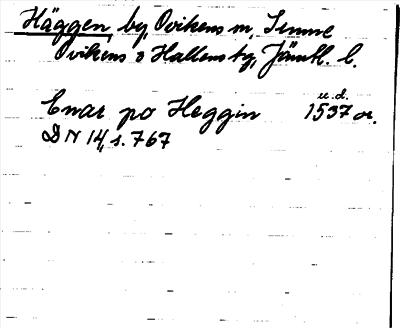 Häggen, by, Ovikens sn,
Ovikens o Hallens tg, Jämtl. l.
u.d.
Enar po Heggin 1537 or.
DN 14, s. 767